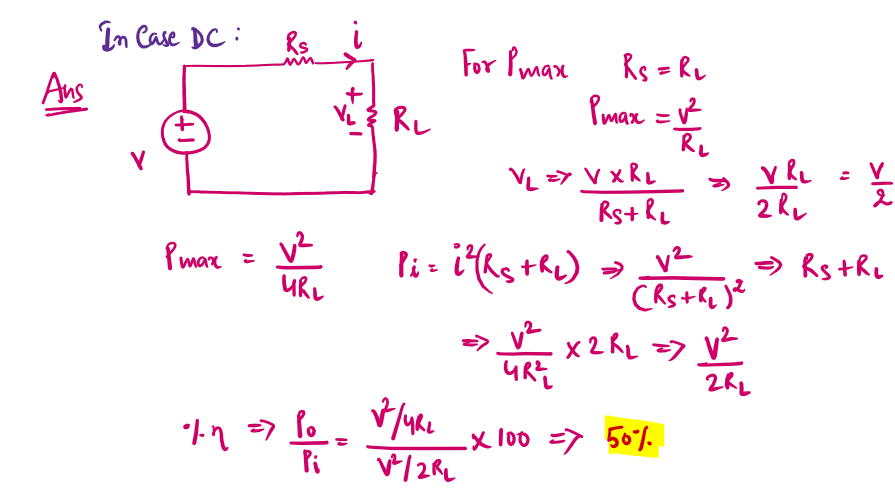 In Case DC :
Ans
Rs i
V + − + VL − RL
For Pmax Rs = RL
Pmax = V²/RL
VL => V × RL / Rs + RL => V RL / 2 RL = V/2
Pmax = V²/4RL
Pi = i²(Rs + RL) => V²/(Rs + RL)² => Rs + RL
=> V²/4R²L × 2RL => V²/2RL
% η => Po/Pi = V²/4RL / V²/2RL × 100 => 50%